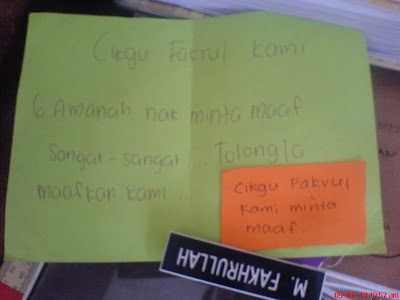 Cikgu Fakrul kami
6 Amanah nak minta maaf
Sangat-sangat... Tolongla
maafkan kami...
Cikgu Fakrul
kami minta
maaf.
M. FAKHRULLAH